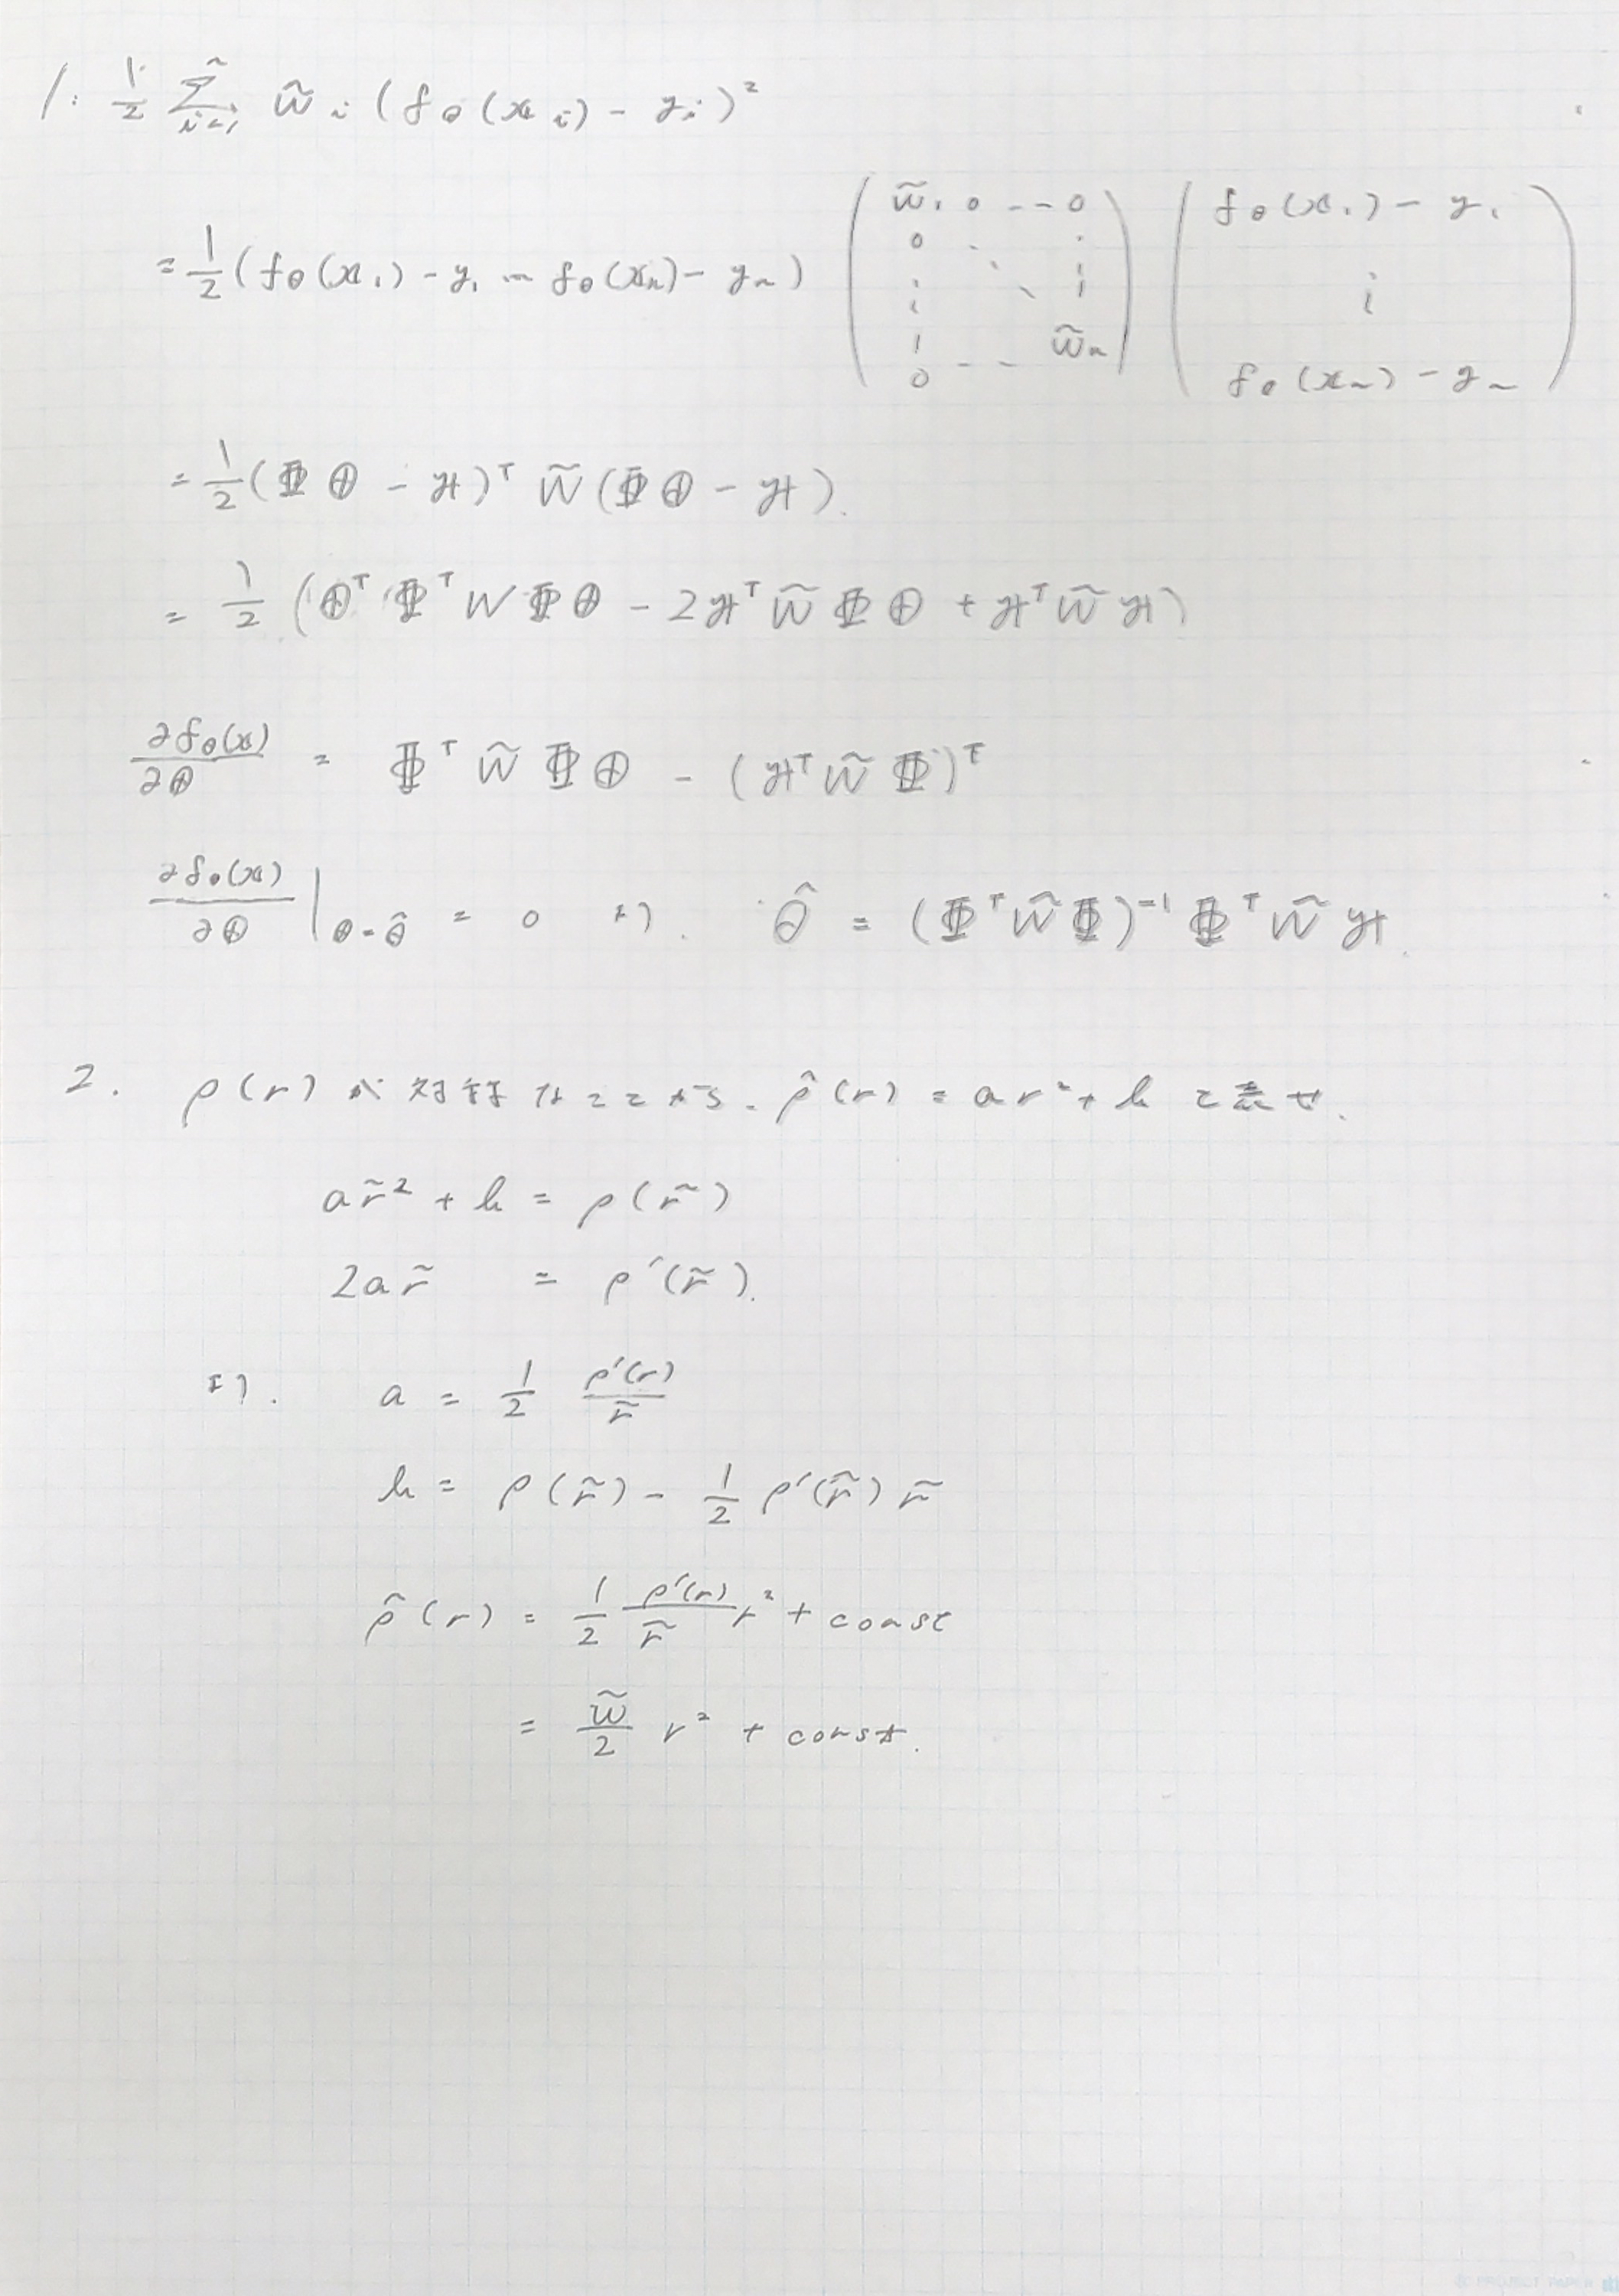 1. 1/2 Σ_{i=1}^{n} w̃_i (f_θ(x_i) - y_i)²
= 1/2 (f_θ(x_1) - y_1 … f_θ(x_n) - y_n) ( w̃_1 0 … 0 ⋮ ⋱ ⋮ 0 … w̃_n ) ( f_θ(x_1) - y_1 ⋮ f_θ(x_n) - y_n )
= 1/2 (Φθ - y)^T W̃ (Φθ - y).
= 1/2 (θ^T Φ^T W Φθ - 2y^T W̃ Φθ + y^T W̃ y)
∂f_θ(x)/∂θ = Φ^T W̃ Φθ - (y^T W̃ Φ)^T
∂f_θ(x)/∂θ |_{θ=θ̂} = 0 より. θ̂ = (Φ^T W̃ Φ)^{-1} Φ^T W̃ y.
2. ρ(r) が対称なことから. ρ̂(r) = ar² + b と表せ.
a r̃² + b = ρ(r̃)
2a r̃ = ρ'(r̃).
より. a = 1/2 ρ'(r)/r̃
b = ρ(r̃) - 1/2 ρ'(r̃) r̃
ρ̃(r) = 1/2 ρ'(r)/r̃ r² + const
= w̃/2 r² + const.